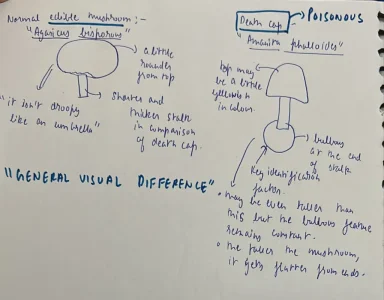 Normal edible mushroom :-
"Agaricus bisporous"
a little
rounder
from top
"it isn't droopy
like an umbrella"
Shorter and
thicker stalk
in comparison
of death cap.
"GENERAL VISUAL DIFFERENCE"
Death cap
POISONOUS
"Amanita phalloides"
top may
be a little
yellowish in
colour.
bulbous
at the end
of stalk
Key identification
factor.
• may be even taller than
this but the bulbous feature
remains constant.
• the taller the mushroom,
it gets flatter from ends.